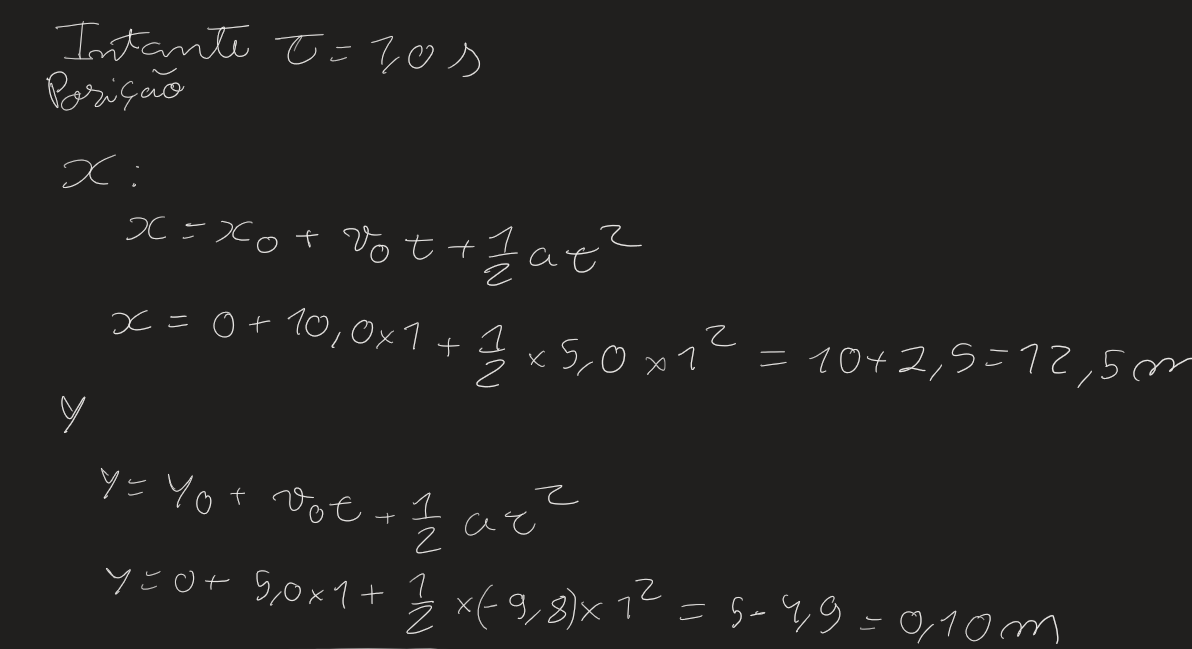 Intante t = 1,0 s
Posição
x :
x = x₀ + v₀ t + 1/2 a t²
x = 0 + 10,0 × 1 + 1/2 × 5,0 × 1² = 10 + 2,5 = 12,5 m
y
y = y₀ + v₀ t + 1/2 a t²
y = 0 + 5,0 × 1 + 1/2 × (-9,8) × 1² = 5 - 4,9 = 0,10 m